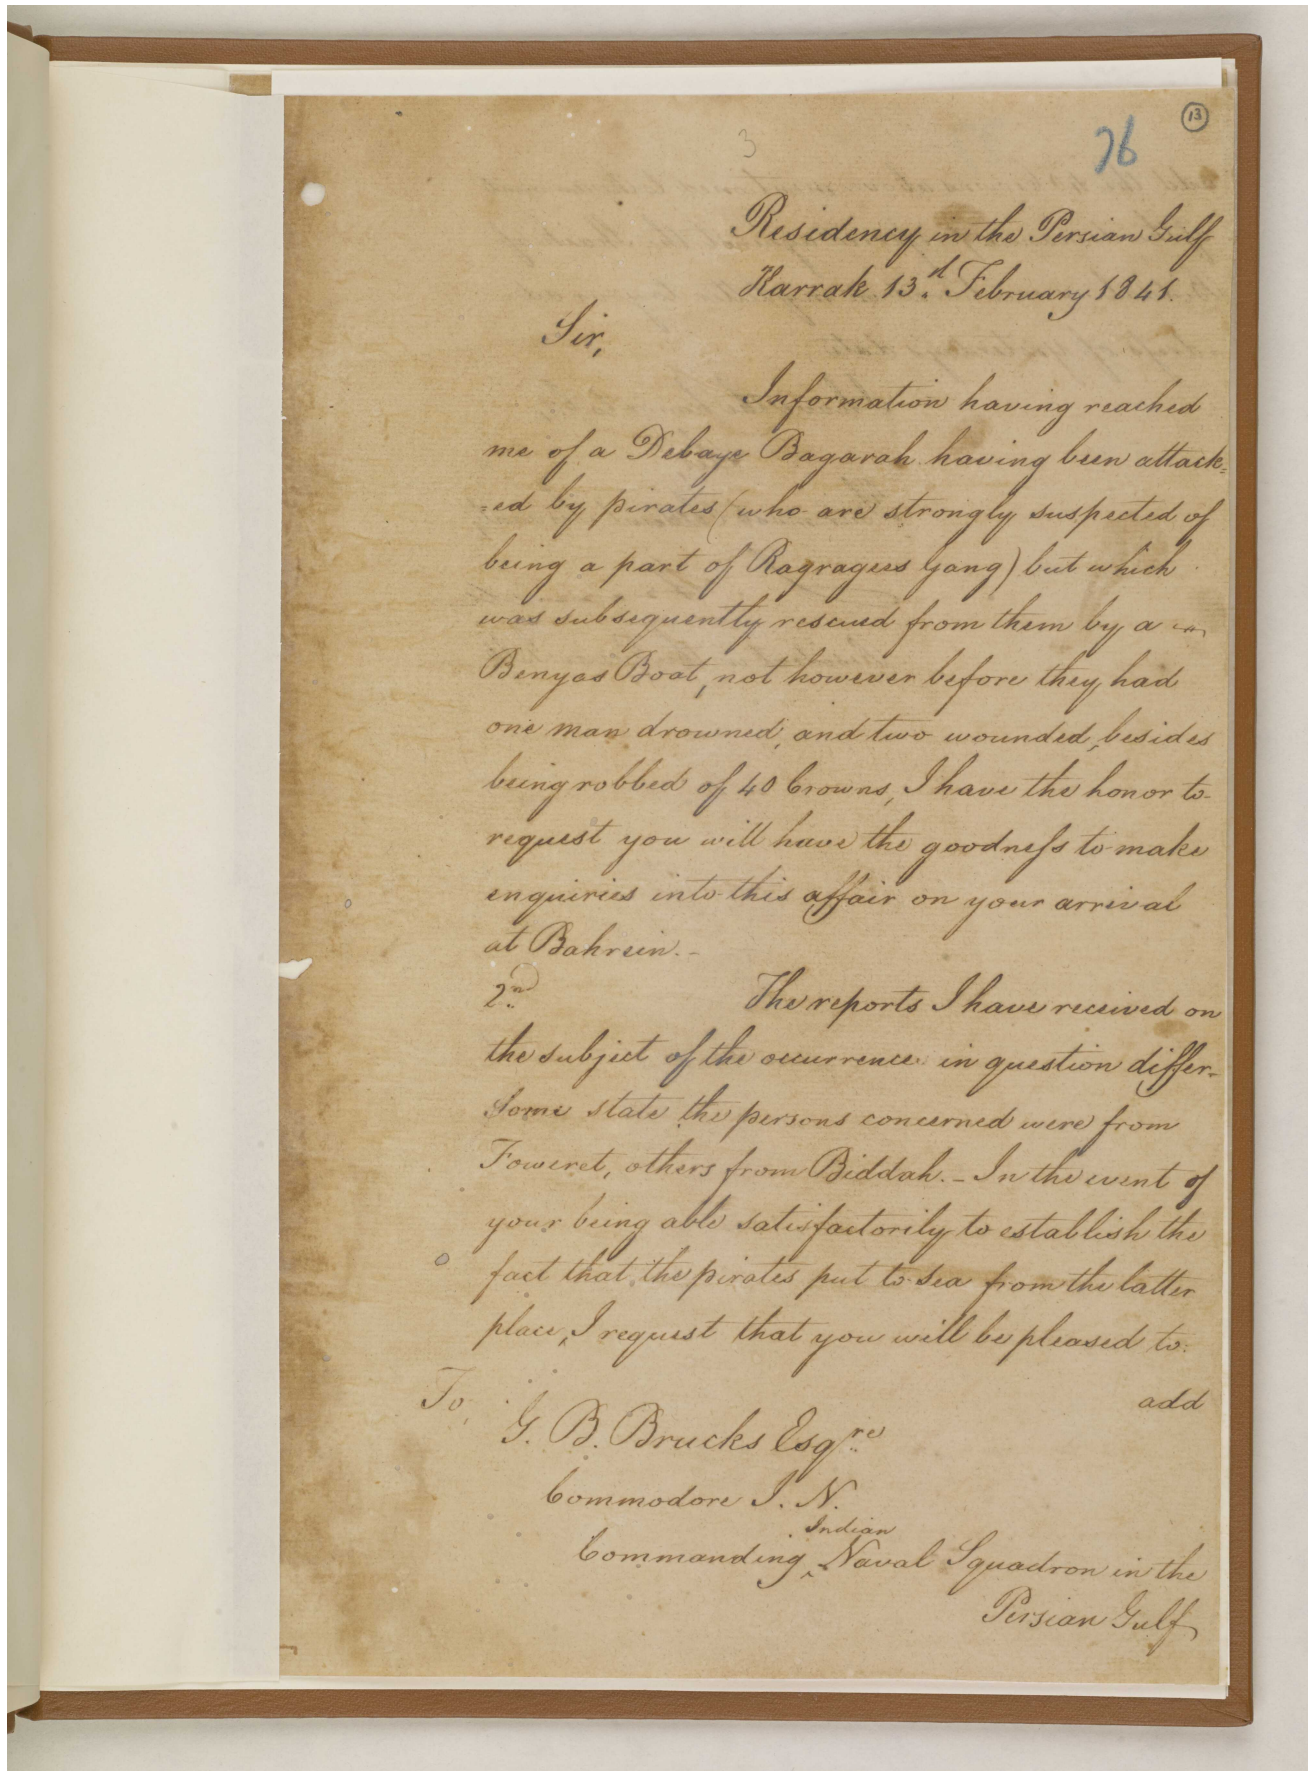 13
3
76
Residency in the Persian Gulf
Karrak 13.d February 1841.
Sir,
Information having reached
me of a Debaye Bagarah having been attack=
=ed by pirates (who are strongly suspected of
being a part of Ragragees Gang) but which
was subsequently rescued from them by a
Benyas Boat, not however before they had
one man drowned, and two wounded, besides
being robbed of 40 Crowns, I have the honor to
request you will have the goodness to make
enquiries into this affair on your arrival
at Bahrein.-
2nd The reports I have received on
the subject of the occurrence in question differ-
Some state the persons concerned were from
Foweret, others from Biddah.- In the event of
your being able satisfactorily to establish the
fact that the pirates put to sea from the latter
place, I request that you will be pleased to
add
To,
G. B. Brucks Esqre
Commodore I. N.
Indian
Commanding ^ Naval Squadron in the
Persian Gulf